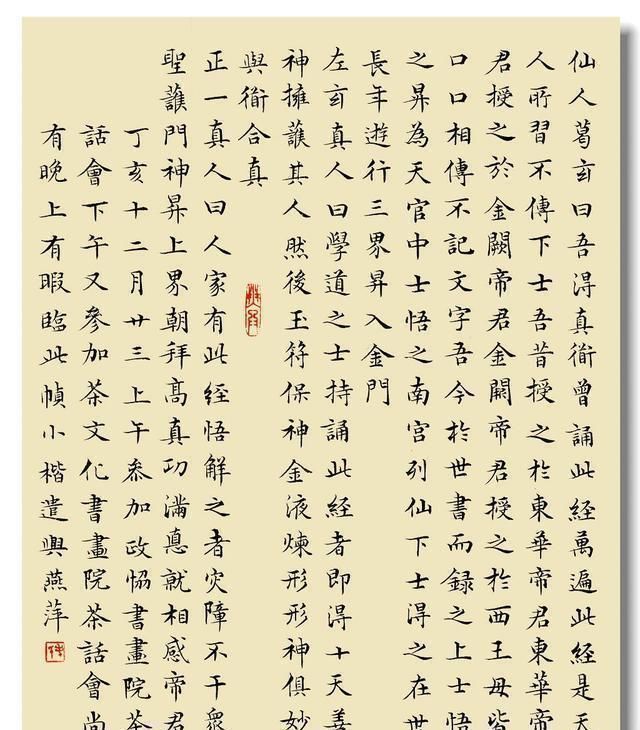 仙人葛玄曰吾淂真衜曾誦此經萬遍此經是天
人所習不傳下士吾昔授之於東華帝君東華帝
君授之於金闕帝君金闕帝君授之於西王母皆
口口相傳不記文字吾今於世書而録之上士悟
之昇為天官中士悟之南宮列仙下士得之在世
長年遊行三界昇入金門
左玄真人曰學道之士持誦此經者即得十天善
神擁護其人然後玉符保神金液煉形形神俱妙
與衜合真
正一真人曰人家有此經悟解之者灾障不干衆
聖護門神昇上界朝拜高真功滿悳就相感帝君
丁亥十二月廿三上午叅加政恊書畫院茶
話會下午又參加茶文化書畫院茶話會尚
有晚上有暇臨此幀小楷遣興燕萍